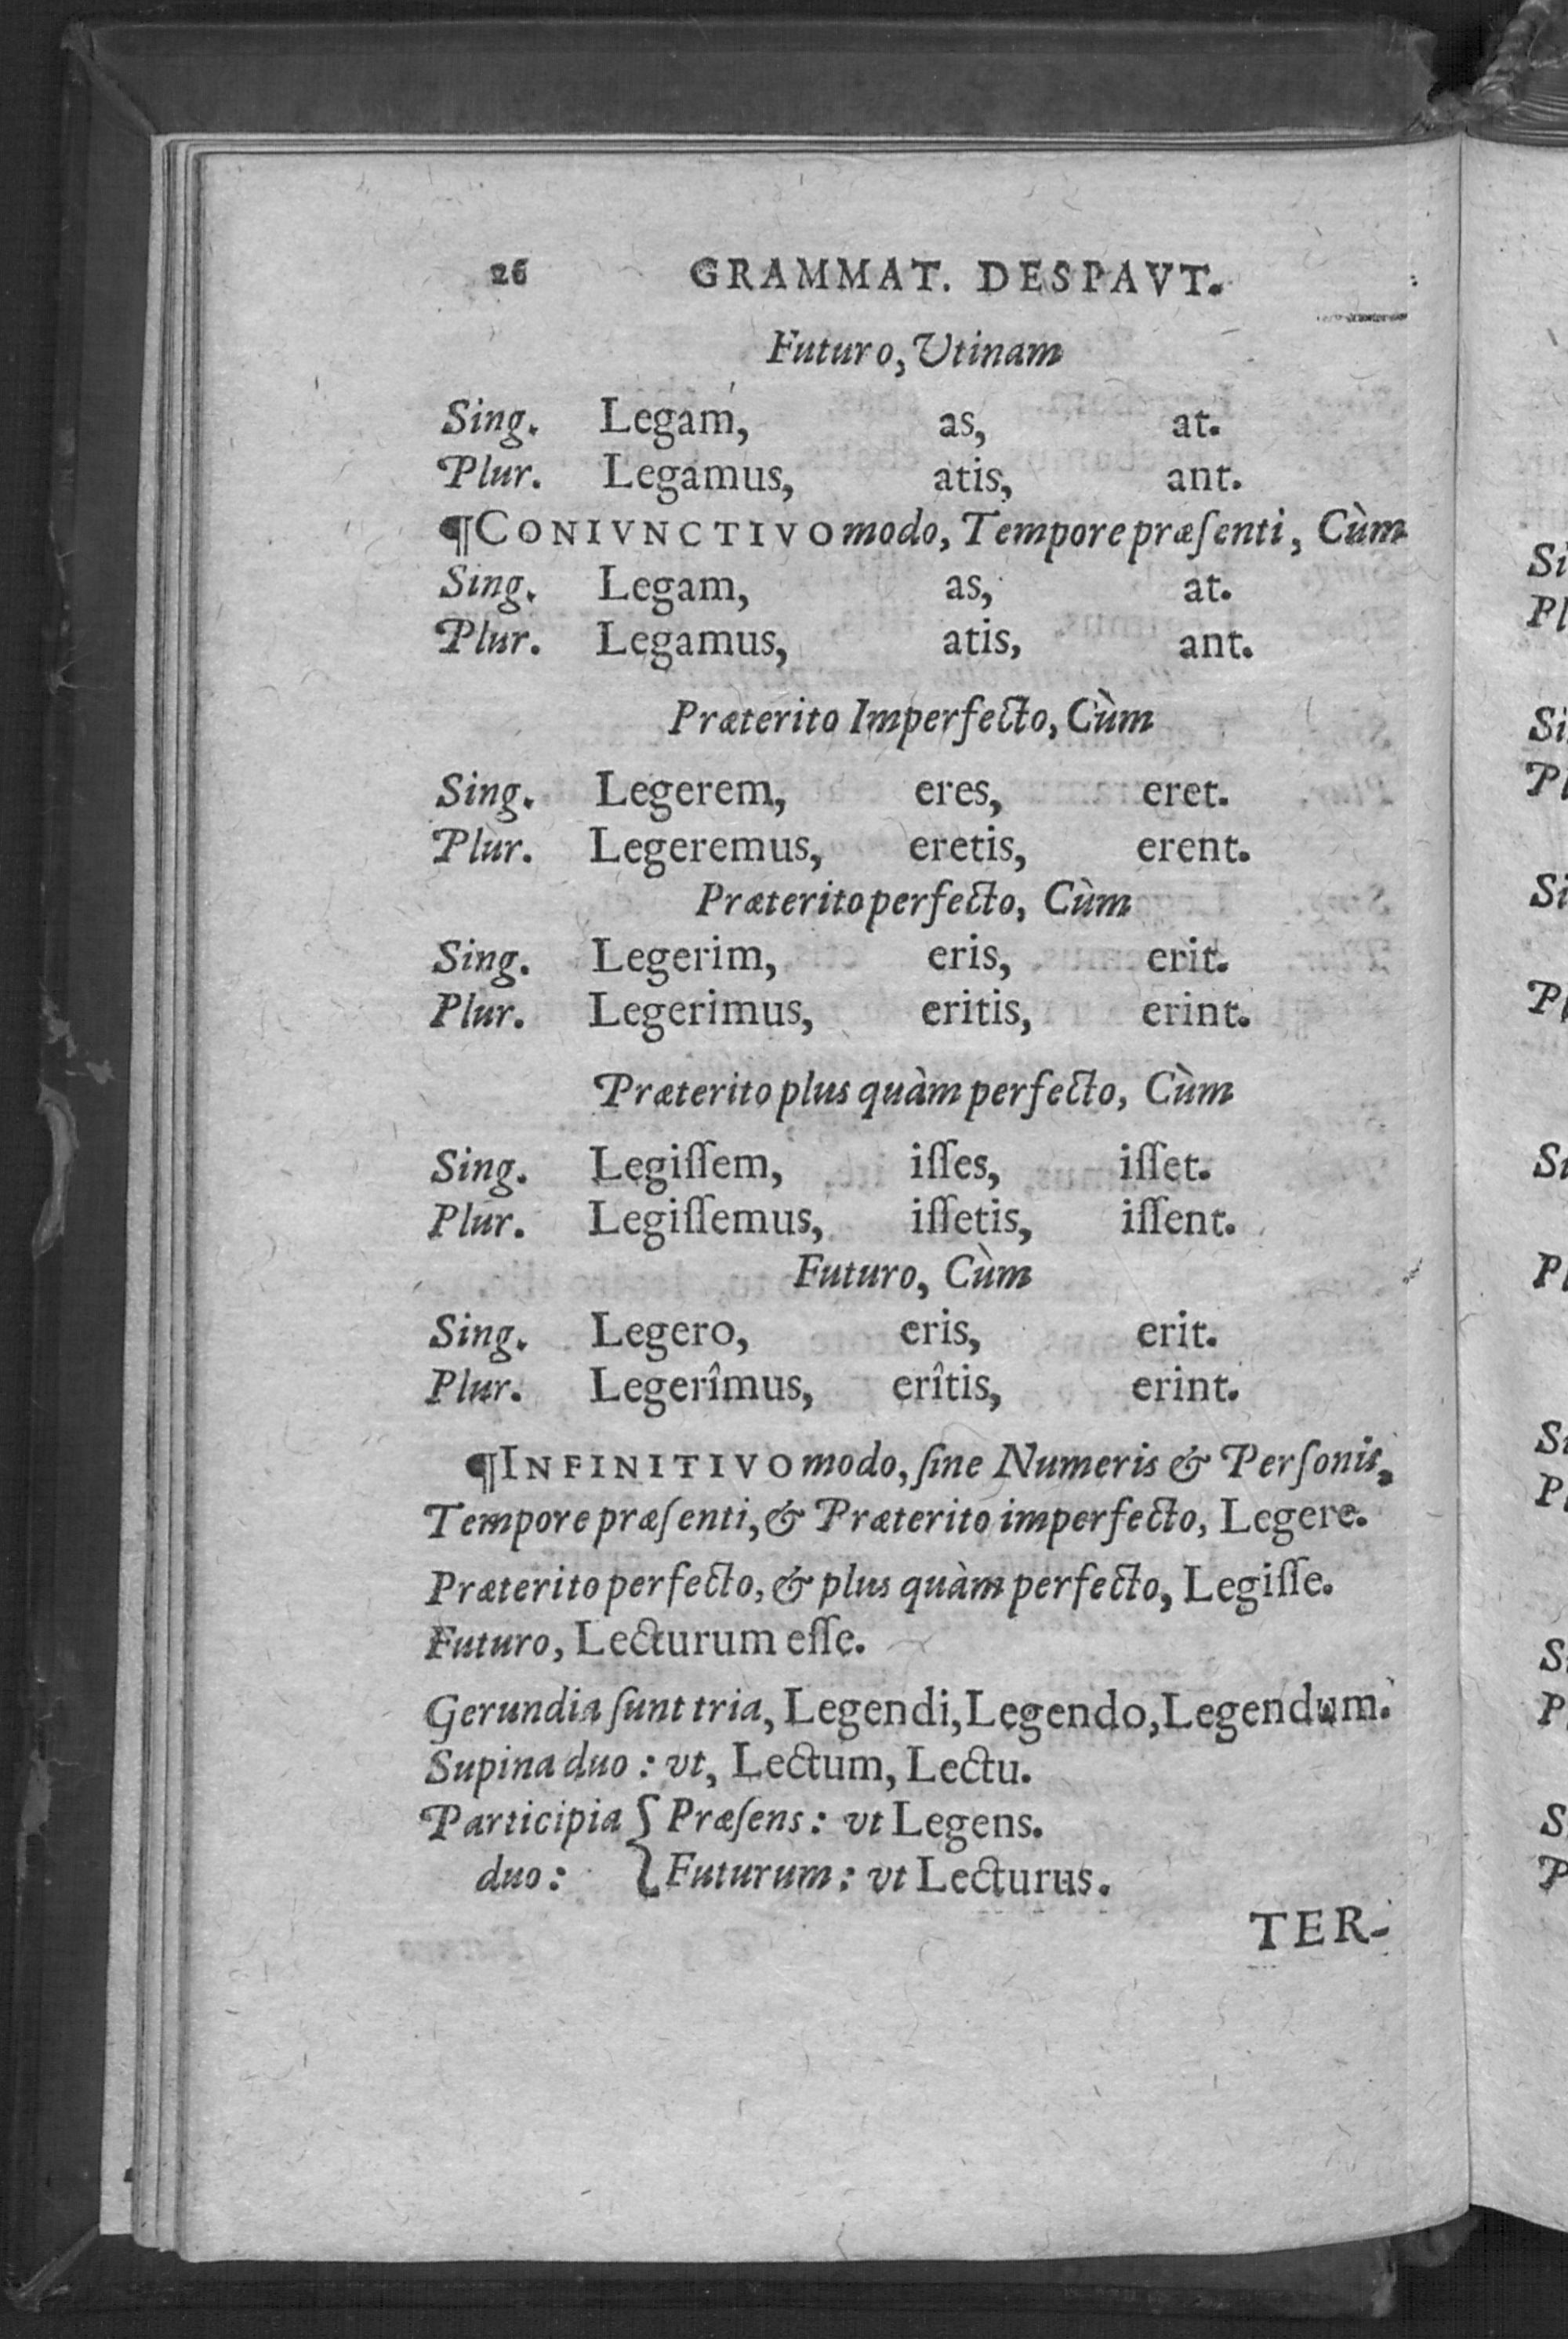 26 GRAMMAT. DESPAVT.
Futuro, Utinam
Sing. Legam, as, at.
Plur. Legamus, atis, ant.
¶CONIVNCTIVO modo, Tempore præſenti, Cùm
Sing. Legam, as, at.
Plur. Legamus, atis, ant.
Præterito Imperfecto, Cùm
Sing. Legerem, eres, eret.
Plur. Legeremus, eretis, erent.
Præterito perfecto, Cùm
Sing. Legerim, eris, erit.
Plur. Legerimus, eritis, erint.
Præterito plus quàm perfecto, Cùm
Sing. Legiſſem, iſſes, iſſet.
Plur. Legiſſemus, iſſetis, iſſent.
Futuro, Cùm
Sing. Legero, eris, erit.
Plur. Legerîmus, erîtis, erint.
¶INFINITIVO modo, ſine Numeris & Perſonis,
Tempore præſenti, & Præterito imperfecto, Legere.
Præterito perfecto, & plus quàm perfecto, Legiſſe.
Futuro, Lecturum eſſe.
Gerundia ſunt tria, Legendi, Legendo, Legendum.
Supina duo: vt, Lectum, Lectu.
Participia { Præſens: vt Legens.
duo: { Futurum: vt Lecturus.
TER-